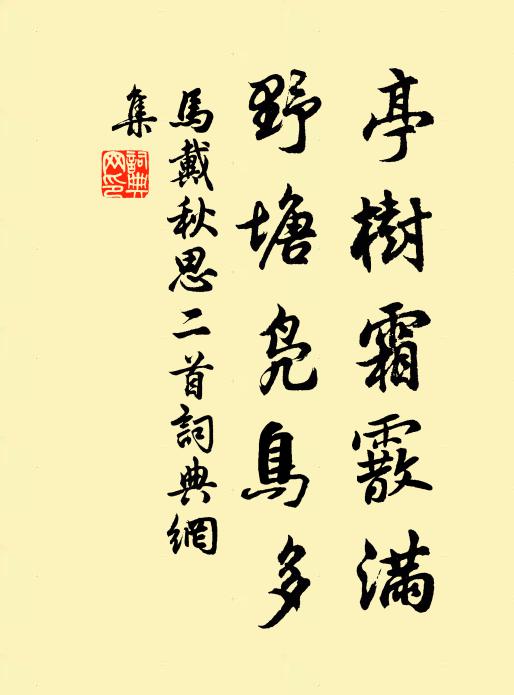 亭樹霜霰滿
野塘鳧鳥多
馬戴秋思二首詞典網
集
詞典
网印